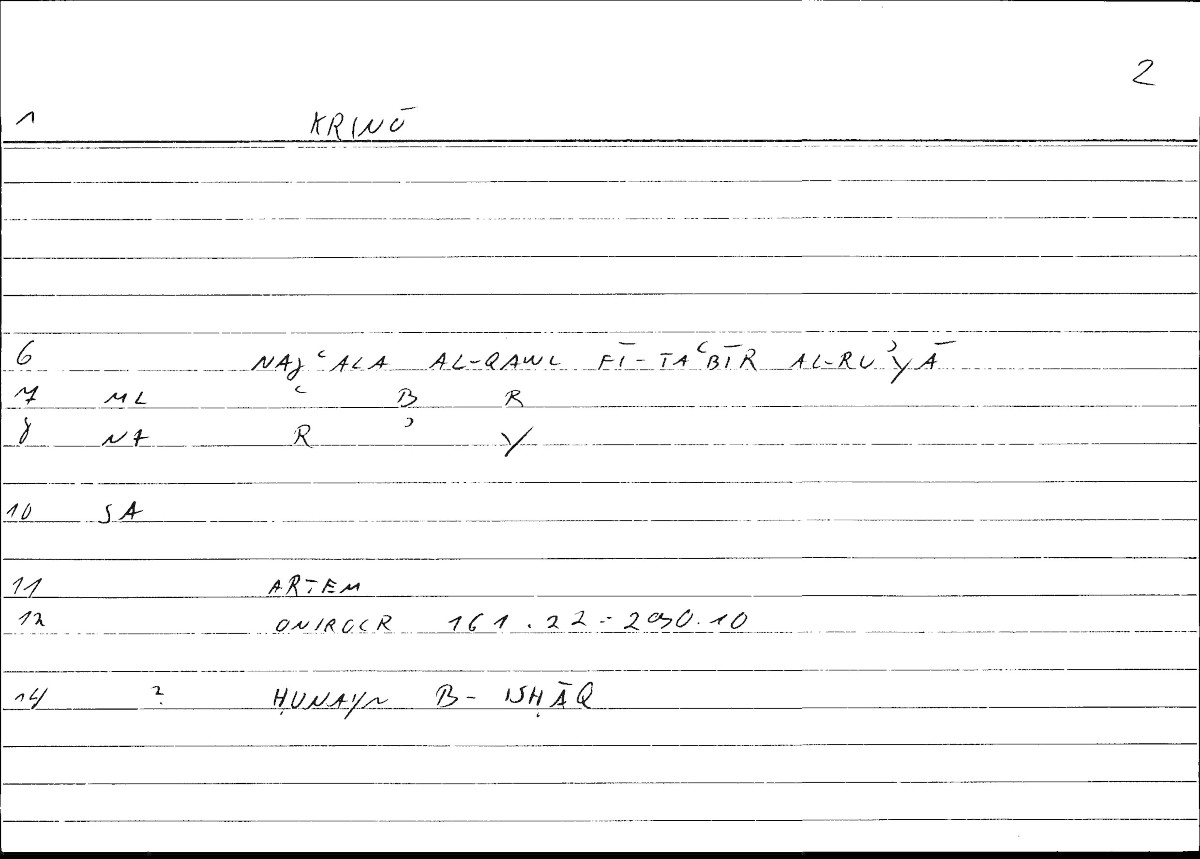 2
1 KRINŌ
6 NAJʿALA AL-QAWL FĪ-TAʿBĪR AL-RUʾYĀ
7 ML ʿ B R
8 NA R ʾ Y
10 SA
11 ARTEM
12 ONIROCR 161.22-230.10
14 ? ḤUNAYN B- ISḤĀQ